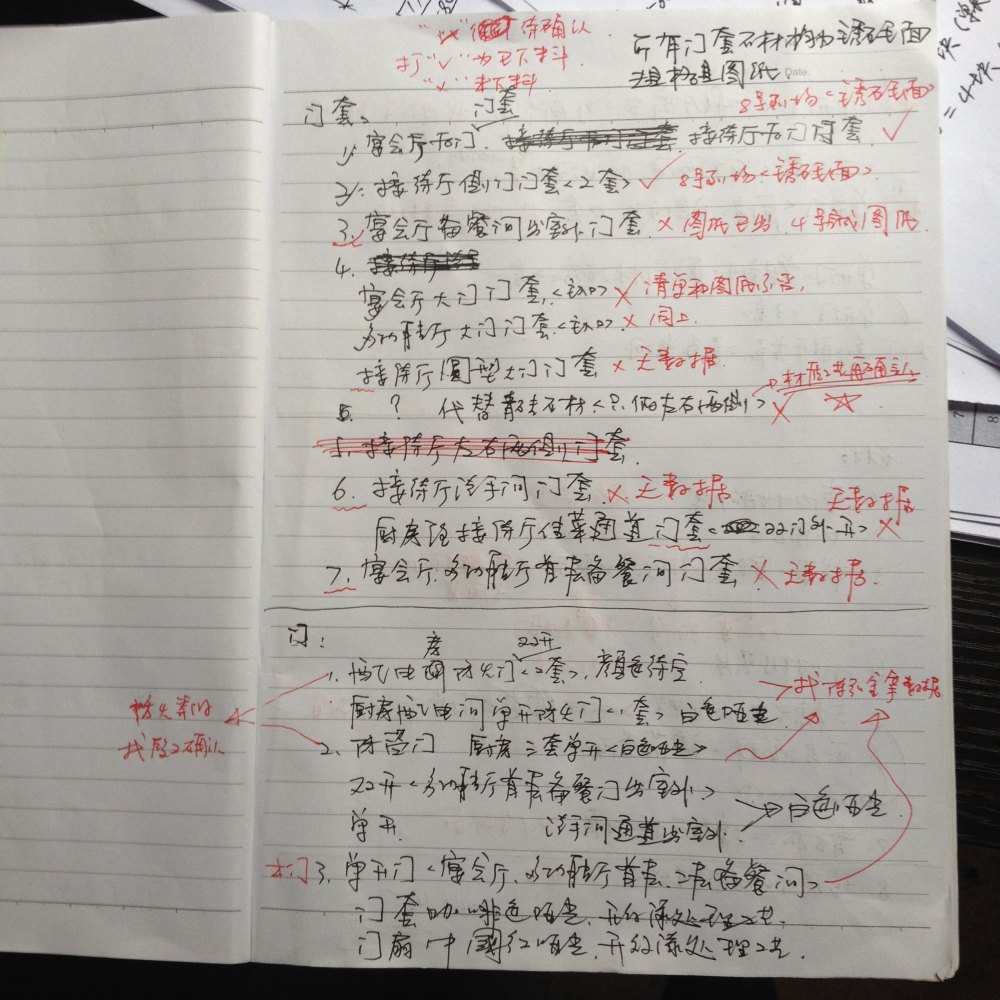 "  " 待确认
打"√"为已下料
"×"未下料
所有门套石材均为锈石毛面
Date.
8号到场<锈石毛面>
门套、 门套
1、宴会厅右门、 接待厅右门门套 ✓
2、接待厅侧门门套<2套> ✓ 8号到场<锈石毛面>
3、宴会厅备餐间出室外门套 × 图纸已出 4号 图纸
4.
宴会厅大门门套<主入口> × 清单和图纸不
多功能厅大门门套<主入口> × 同上
接待厅圆型大门门套 × 无数据
5. ? 代替 石材<只做左右两侧> ×
☆
5、接待厅左右两侧门套
6、接待厅洗手间门套 × 无数据 无数据
厨房 接待厅传菜通道门套<双门外开> ×
7、宴会厅、多功能厅首层备餐间门套 × 无数据
门: 房 双开
1、配电 防火门<2套>, 颜色待定
厨房配电间单开防火门<1套> 白色哑光
→找 拿数据
找 确认
2、 门 厨房三套单开<白色哑光>
双开<多功能厅首层备餐门出室外>
→白色哑光
单开 洗手间通道出室外
木门 3、单开门<宴会厅、多功能厅首层、二层备餐间>
门套咖啡色哑光,开放漆处理工艺.
门扇中國红哑光,开放漆处理工艺